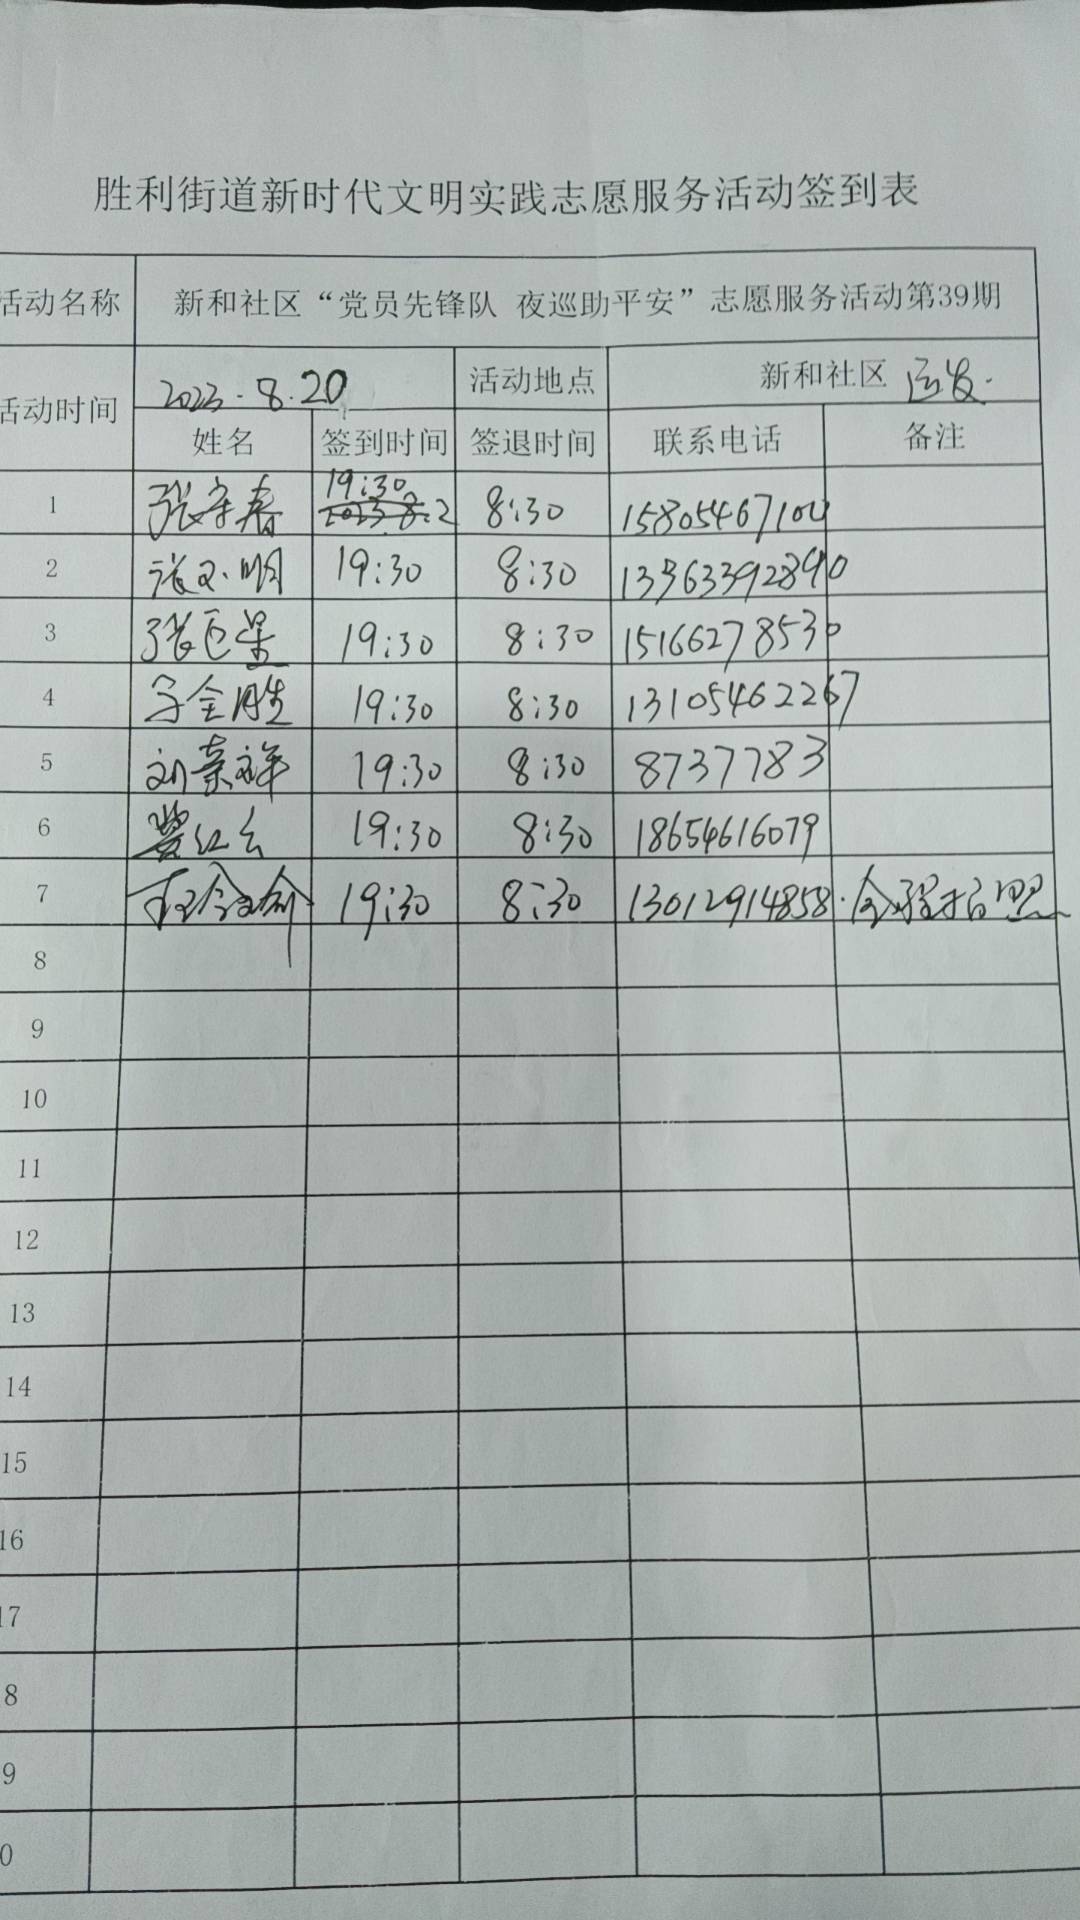 胜利街道新时代文明实践志愿服务活动签到表
活动名称 新和社区“党员先锋队 夜巡助平安”志愿服务活动第39期
活动时间 2023.8.20 活动地点 新和社区
姓名 签到时间 签退时间 联系电话 备注
1 张守春 19:30 8:30
2 张文明 19:30 8:30 13563392890
3 张巨 19:30 8:30 15166278530
4 金胜 19:30 8:30 13105462267
5 刘荣祥 19:30 8:30 8737783
6 红云 19:30 8:30 18654616079
7 19:30 8:30 13012914858
8
9
10
11
12
13
14
15
16
17
8
9
0